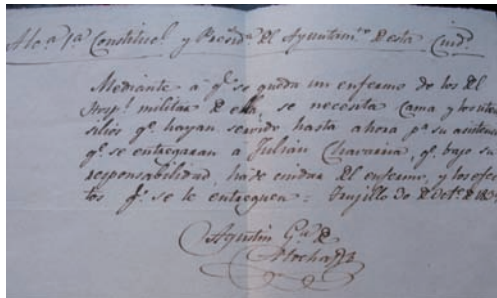 Alc.e 1.a Constituc.l y Presid.e del Ayuntam.to de esta Ciud.
Mediante a q.e se queda un enfermo de los del
Hosp.l militar de ella, se necesita Cama y los uten
silios q.e hayan servido hasta ahora p.a su asistenc
q.e se entregaran a Julián Chavaina, q.e bajo su
responsabilidad, ha de cuidar del enfermo, y los efec
tos q.e se le entreguen = Trujillo 30 de Oct.e de
Agustin G.a de
Atocha